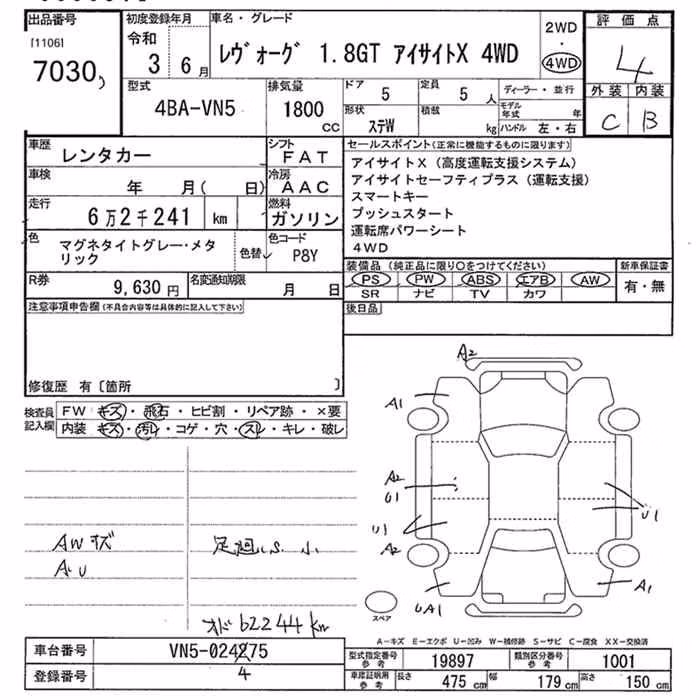 出品番号
[1106]
7030
初度登録年月
令和
3 6月
車名・グレード
レヴォーグ 1.8GT アイサイトX 4WD
2WD
・
4WD
評価点
4
外装 内装
C B
型式
4BA-VN5
排気量
1800
CC
ドア
5
定員
5人
形状
ステW
積載
kg
ディーラー・並行
モデル年式 年
ハンドル 左・右
車歴
レンタカー
シフト
FAT
車検
年 月( 日)
冷房
AAC
走行
6万2千241 km
燃料
ガソリン
色
マグネタイトグレー・メタリック
色替
色コード
P8Y
R券
9,630円
名変通知期限
月 日
セールスポイント(正常に機能するものに限ります)
アイサイトX(高度運転支援システム)
アイサイトセーフティプラス(運転支援)
スマートキー
プッシュスタート
運転席パワーシート
4WD
装備品(純正品に限り○をつけてください)
PS PW ABS エアB AW
SR ナビ TV カワ
新車保証書
有・無
注意事項申告欄(不具合内容等は具体的に記入して下さい)
後日品
修復歴 有〔箇所 〕
検査員記入欄
FW キズ・飛石・ヒビ割・リペア跡・×要
内装 キズ・汚レ・コゲ・穴・スレ・キレ・破レ
A2
A1
A2
U1
U1
U1
A2
UA1
A1
AWキズ
AU
足廻りS小
オド62244km
スペア
A-キズ E-エクボ U-凹み W-補修跡 S-サビ C-腐食 XX-交換済
車台番号
VN5-024275
4
登録番号
型式指定番号
参考
19897
類別区分番号
参考
1001
車庫証明用
参考
長さ 475cm
幅 179cm
高さ 150cm